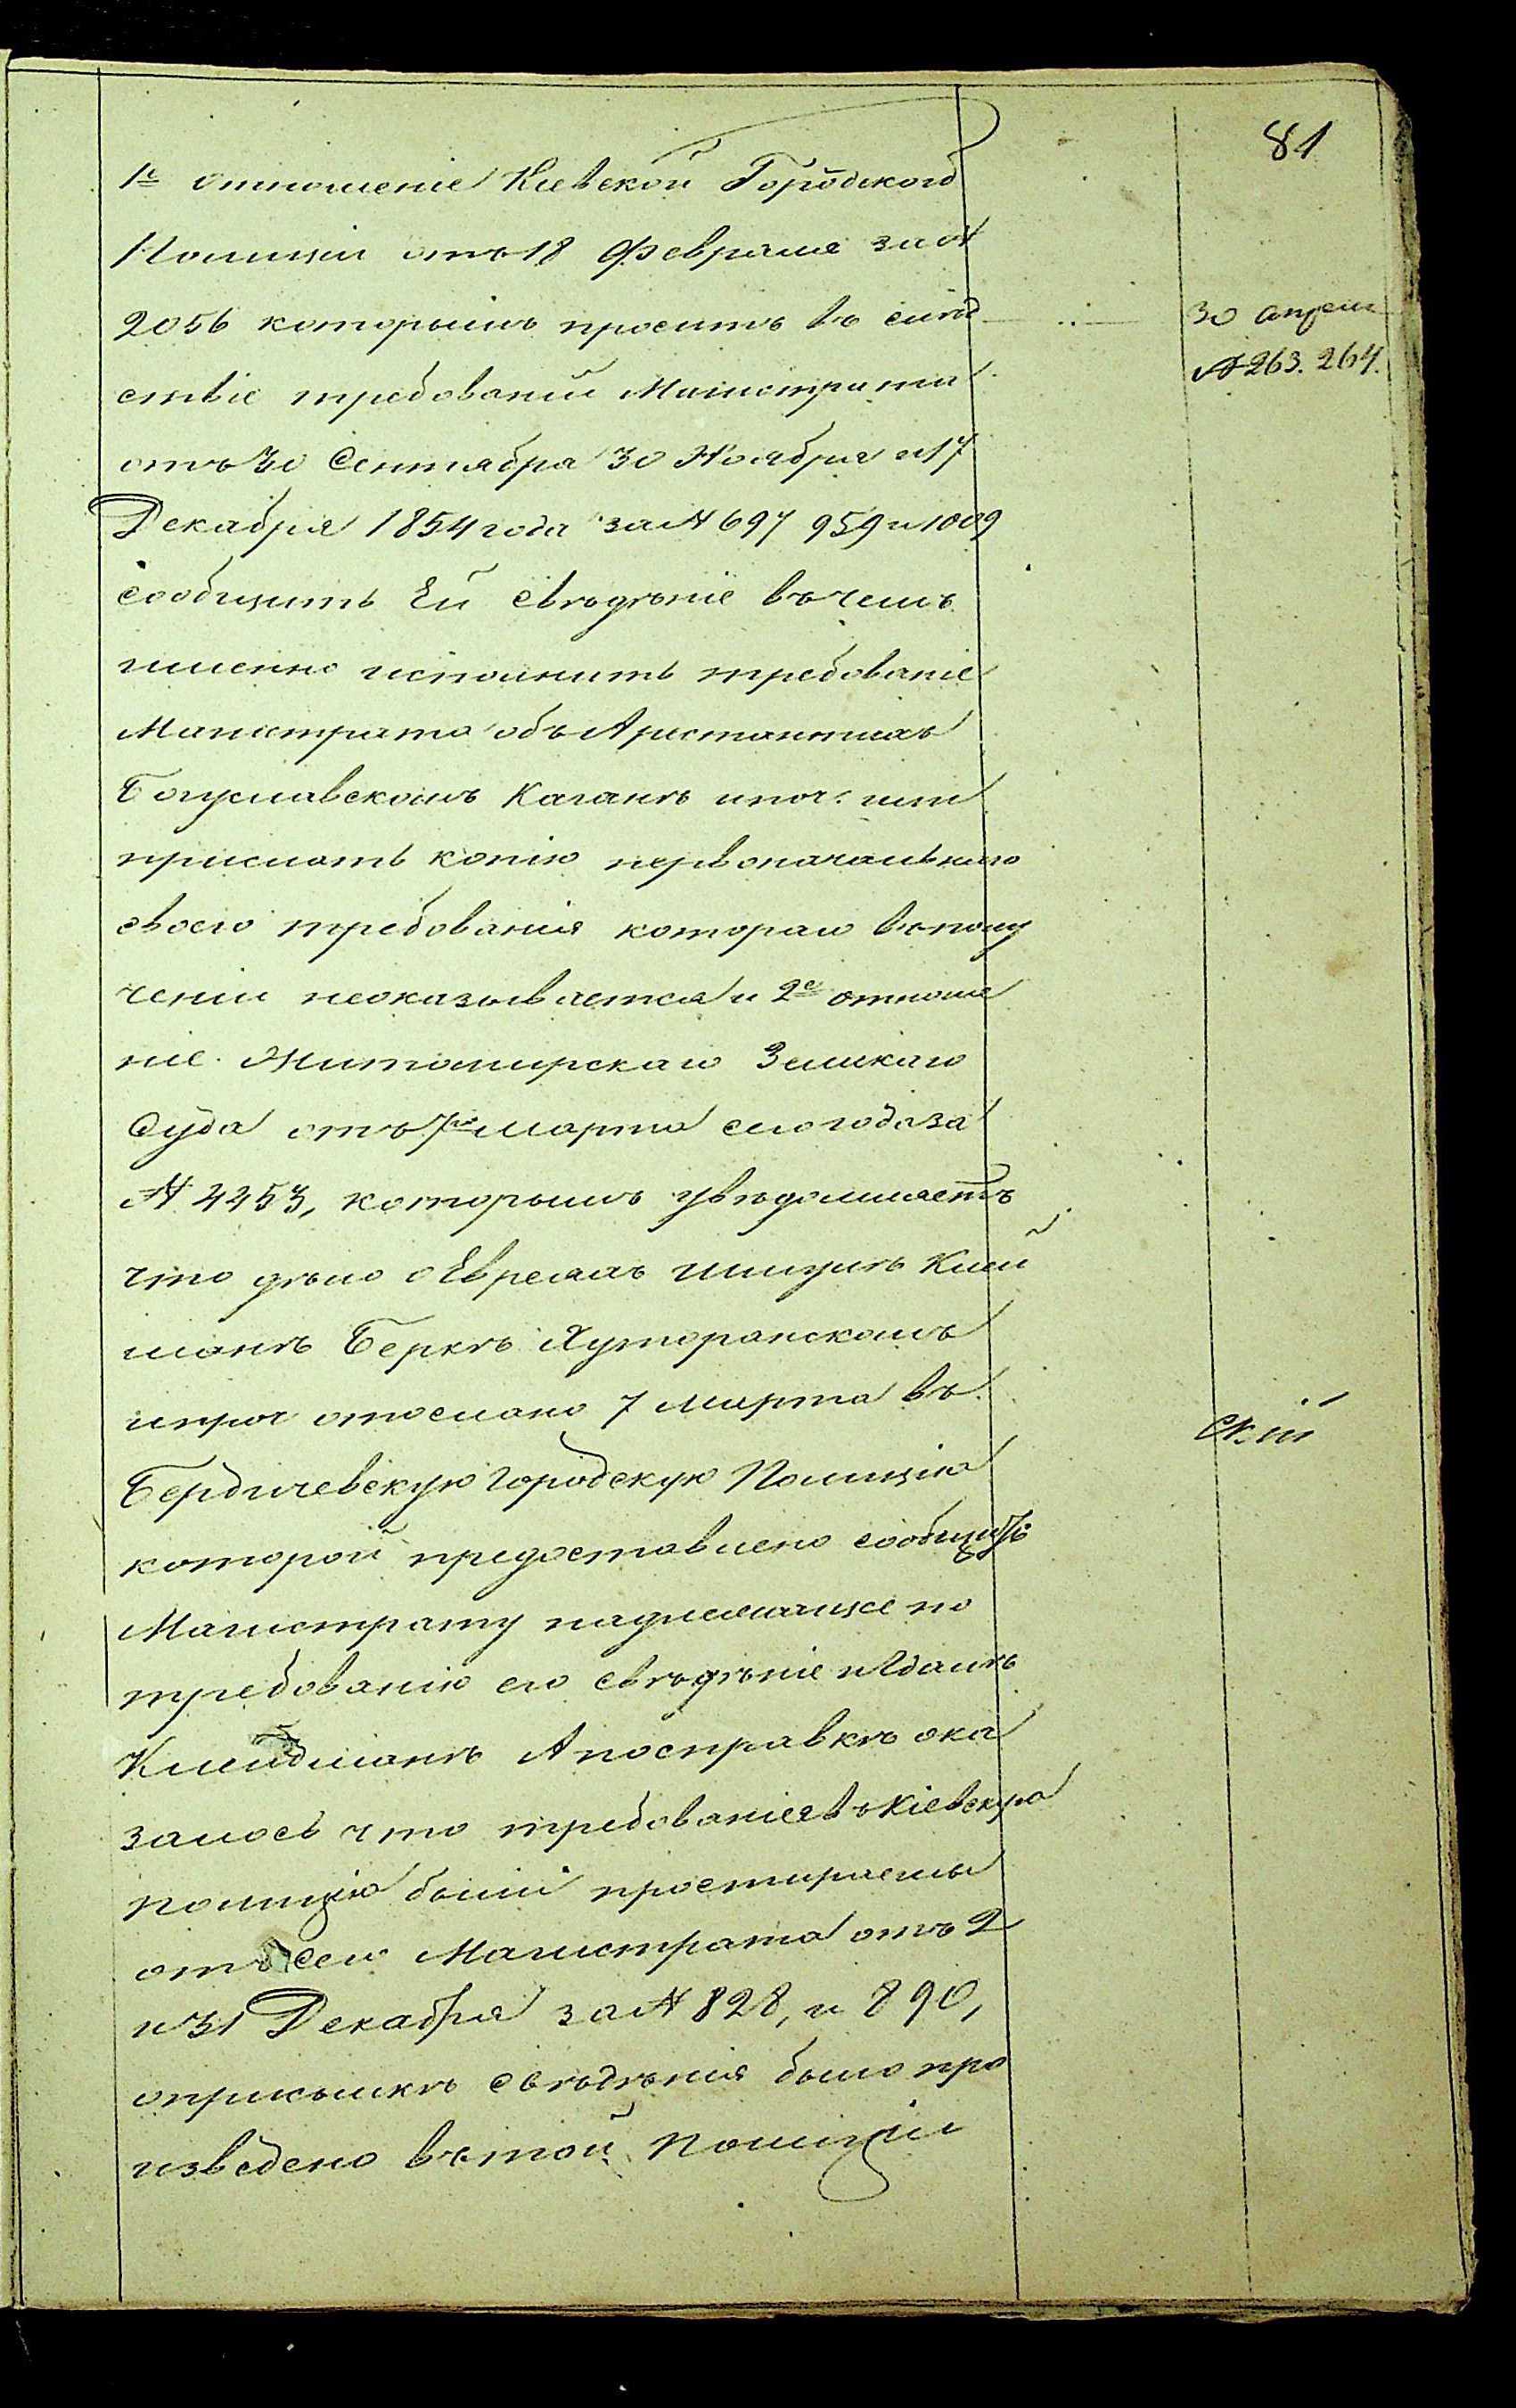 81
1е отношеніе Кіевской Городского
Полиціи отъ 18 Февраля за №
2056 которымъ проситъ въ слѣд
ствіе требованій Магистрата
отъ 30 Сентября 30 Ноября и 17
Декабря 1854 года за № 697 959 и 1009
сообщить Ей свѣдѣніе въ чемъ
именно исполнить требованіе
Магистрата объ Арестантахъ
Богуславскомъ Каганѣ и проч. или
прислать копію первоначальнаго
своего требованія котораго въ полу
ченіи неоказывается и 2е отноше
ніе Житомирскаго Земскаго
Суда отъ 7го марта сего года за
№ 4453, которымъ увѣдомляетъ
что дѣло о Евреяхъ Клей
манѣ Беркѣ Хуторанскомъ
и проч отослано 7 Марта въ
Бердичевскую Городскую Полицію
которой предоставлено сообщить
Магистрату надлежащее по
требованію его свѣдѣніе
Клейдманѣ А по справкѣ ока
залось что требованіея въ Кіевскую
полицію были простираемы
отъ сего Магистрата отъ 2
и 31 Декабря за № 828, и 890,
о присылкѣ свѣдѣнія было про
изведено въ той Полиціи
30 апреля
№ 263. 264.